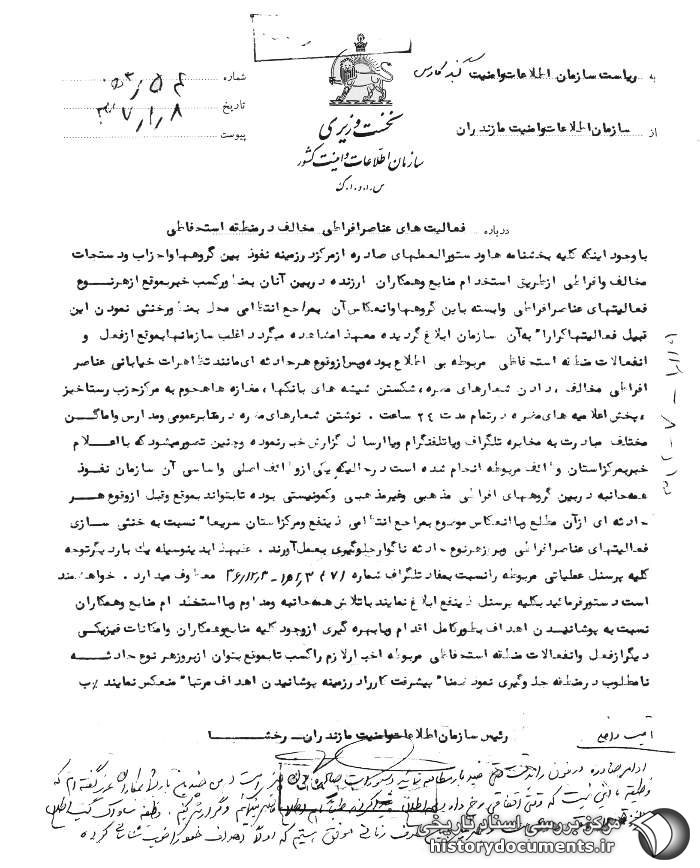 به ریاست سازمان اطلاعات و امنیت گنبد کاوس
از سازمان اطلاعات و امنیت مازندران
نخست وزیری
سازمان اطلاعات و امنیت کشور
س.ا.و.ا.ک
شماره
تاریخ
پیوست
درباره فعالیت های عناصر افراطی مخالف در منطقه استحفاظی
با وجود اینکه کلیه بخشنامه ها و دستورالعملهای صادره از مرکز در زمینه نفوذ بین گروهها و احزاب و دستجات
مخالف و افراطی از طریق استخدام منابع و همکاران ارزنده در بین آنان بمنظور کسب خبر بموقع از هر نوع
فعالیتهای عناصر افراطی وابسته باین گروهها و انعکاس آن بمراجع انتظامی محل بمنظور خنثی نمودن این
قبیل فعالیتها کرارا" به آن سازمان ابلاغ گردیده معهذا مشاهده میگردد اغلب سازمانها بموقع از فعل و
انفعالات منطقه استحفاظی مربوطه بی اطلاع بوده و پس از وقوع هر حادثه ای مانند تظاهرات خیابانی عناصر
افراطی مخالف ، دادن شعارهای مضره ، شکستن شیشه های بانکها ، مغازه ها هجوم به مرکز حزب رستاخیز
، پخش اعلامیه های مضره در تمام مدت ۲٤ ساعت . نوشتن شعارهای مضره در معابر عمومی و مدارس و اماکن
مختلف مبادرت به مخابره تلگراف و یا تلفنگرام و یا ارسال گزارش خبر نموده و چنین تصور میشود که با اعلام
خبر بمرکز استان وظائف مربوطه انجام شده است در حالیکه یکی از وظائف اصلی و اساسی آن سازمان نفوذ
همه جانبه در بین گروههای افراطی مذهبی و غیر مذهبی و کمونیستی بوده تا بتواند بموقع و قبل از وقوع هر
حادثه ای از آن مطلع و با انعکاس موضوع بمراجع انتظامی ذینفع و مرکز استان سریعا" نسبت به خنثی سازی
فعالیتهای عناصر افراطی و بروز هر نوع حادثه ناگوار جلوگیری بعمل آورند . علیهذا بدینوسیله یک بار دیگر توجه
کلیه پرسنل عملیاتی مربوطه را نسبت بمفاد تلگراف شماره معطوف میدارد . خواهشمند
است دستور فرمائید بکلیه پرسنل ذینفع ابلاغ نمایند با تلاش همه جانبه و مداوم و با استخدام منابع و همکاران
نسبت به پوشانیدن اهداف بطور کامل اقدام و با بهره گیری از وجود کلیه منابع و همکاران و امکانات فیزیکی
دیگر از فعل و انفعالات منطقه استحفاظی مربوطه اخبار لازم را کسب تا بموقع بتوان از بروز هر نوع حادثه
نامطلوب در منطقه جلوگیری نمود ضمنا" پیشرفت کار را در زمینه پوشانیدن اهداف مرتبا" منعکس نمایند
رئیس سازمان اطلاعات و امنیت مازندران – رخشا
امنیت داخلی
مرکز بررسی اسناد تاریخی
historydocuments.ir